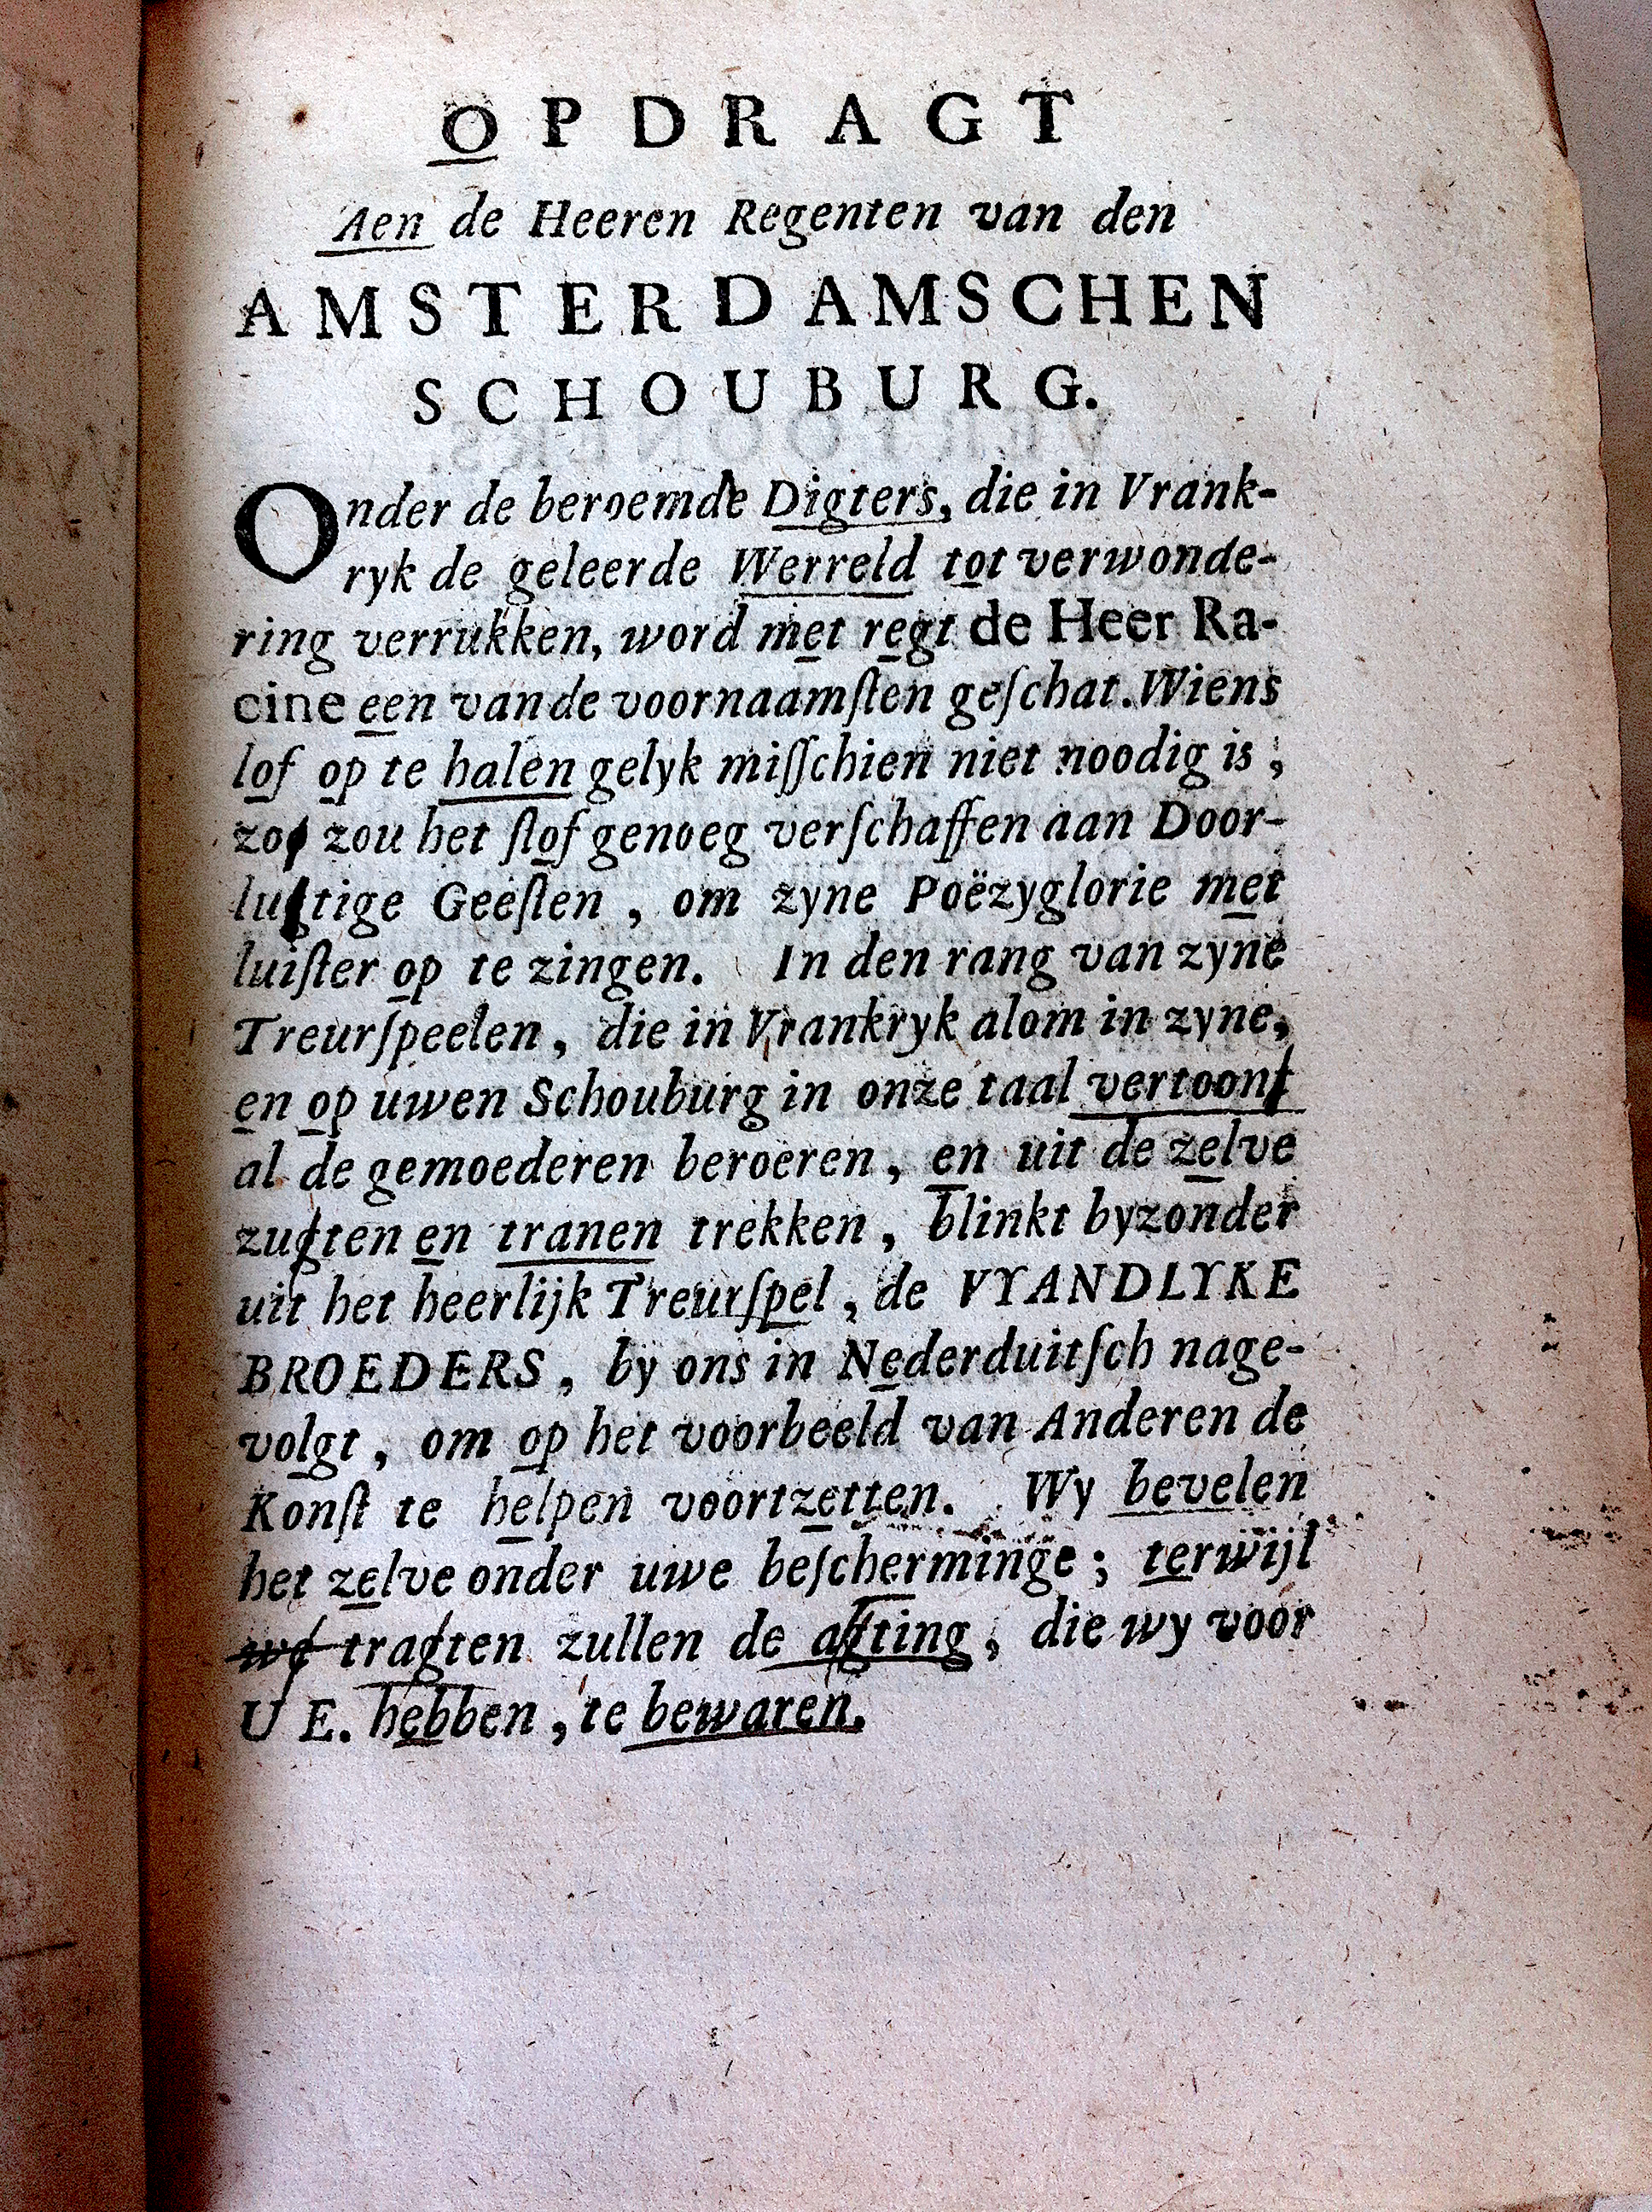 OPDRAGT
Aen de Heeren Regenten van den
AMSTERDAMSCHEN
SCHOUBURG.
Onder de beroemde Digters, die in Vrank-
ryk de geleerde Werreld tot verwonde-
ring verrukken, word met regt de Heer Ra-
cine een van de voornaamſten geſchat. Wiens
lof op te halen gelyk miſſchien niet noodig is,
zou het ſtof genoeg verſchaffen aan Door-
lugtige Geeſten, om zyne Poëzyglorie met
luiſter op te zingen. In den rang van zyne
Treurſpeelen, die in Vrankryk alom in zyne,
en op uwen Schouburg in onze taal vertoont
al de gemoederen beroeren, en uit de zelve
zugten en tranen trekken, blinkt byzonder
uit het heerlijk Treurſpel, de VYANDLYKE
BROEDERS, by ons in Nederduitſch nage-
volgt, om op het voorbeeld van Anderen de
Konſt te helpen voortzetten. Wy bevelen
het zelve onder uwe beſcherminge; terwijl
tragten zullen de agting, die wy voor
U E. hebben, te bewaren.